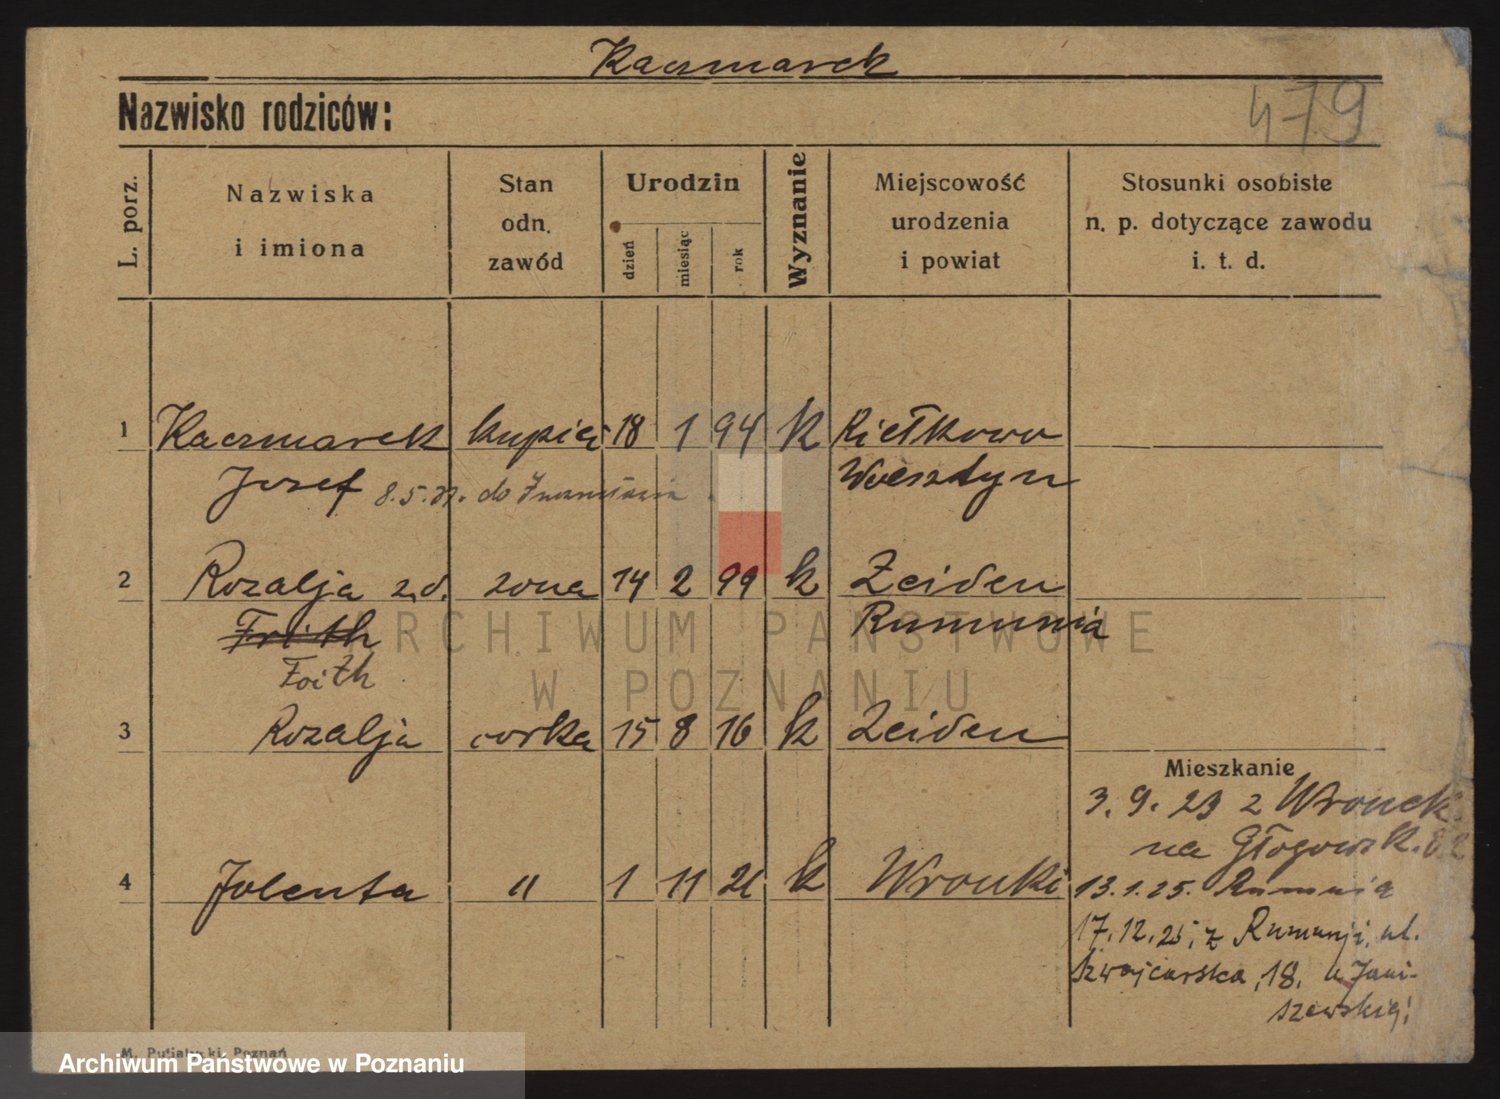 Kaczmarek
Nazwisko rodziców:
479
L. porz.
Nazwiska
i imiona
Stan
odn.
zawód
Urodzin
dzień
miesiąc
rok
Wyznanie
Miejscowość
urodzenia
i powiat
Stosunki osobiste
n. p. dotyczące zawodu
i. t. d.
1 Kaczmarek kupiec 18 1 94 k Kiełkowo
Józef do Wolsztyn
2 Rozalja z d. żona 14 2 99 k Zeiden
Frith Rumunia
Foith
3 Rozalja córka 15 8 16 k Zeiden
Mieszkanie
3. 9. 23 z Wronek
na Głogowsk.
4 Jolenta " 1 11 21 k Wronki
13.1.25. Rumunia
17.12.25. z Rumunji, ul.
Szwajcarska, 18. u Jani-
szewskiej
M. Putiatycki, Poznań
ARCHIWUM PAŃSTWOWE
W POZNANIU
Archiwum Państwowe w Poznaniu